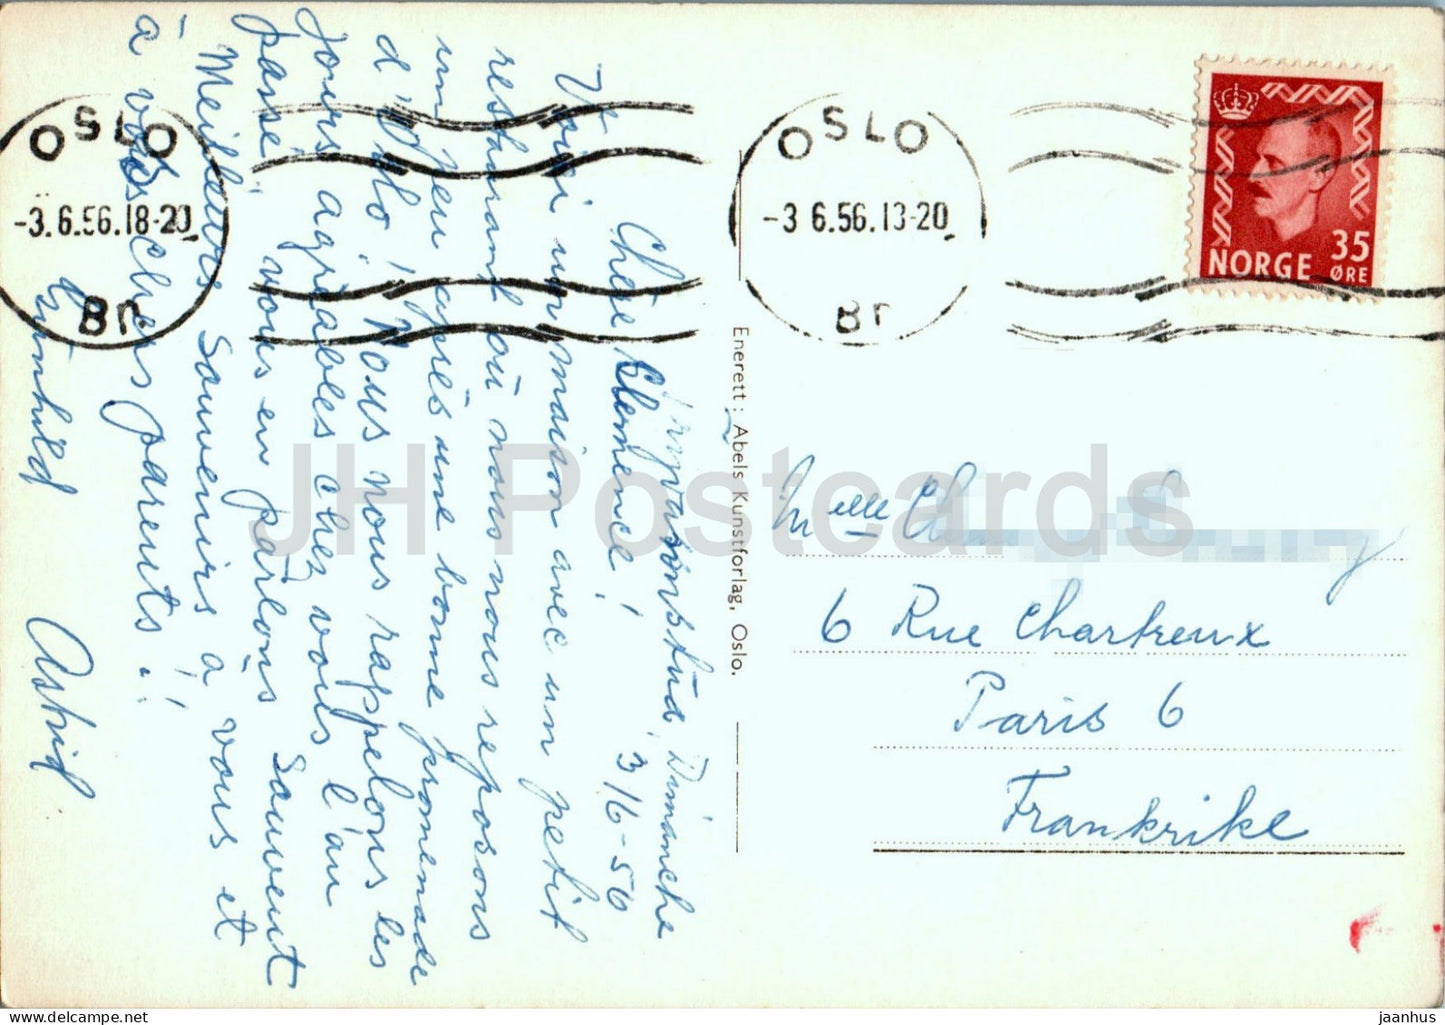 Dimanche
3/6-56
Chère Clemence!
Voici un maison avec un petit
restaurant où nous nous reposons
un peu après une bonne promenade
d'Oslo! Nous nous rappelons les
jours agréables chez vous l'an
passé, vous en parlons sauvent
Meilleurs Souvenirs à vous et
à vos chers parents!!
Gunhild Astrid
OSLO
-3.6.56.18-20.
Br
OSLO
-3 6.56.13-20
Br
NORGE 35 ØRE
Enerett: Abels Kunstforlag, Oslo.
Melle
6 Rue Chartreux
Paris 6
Frankrike
JH Postcards
http://www.delcampe.net
jaanhus